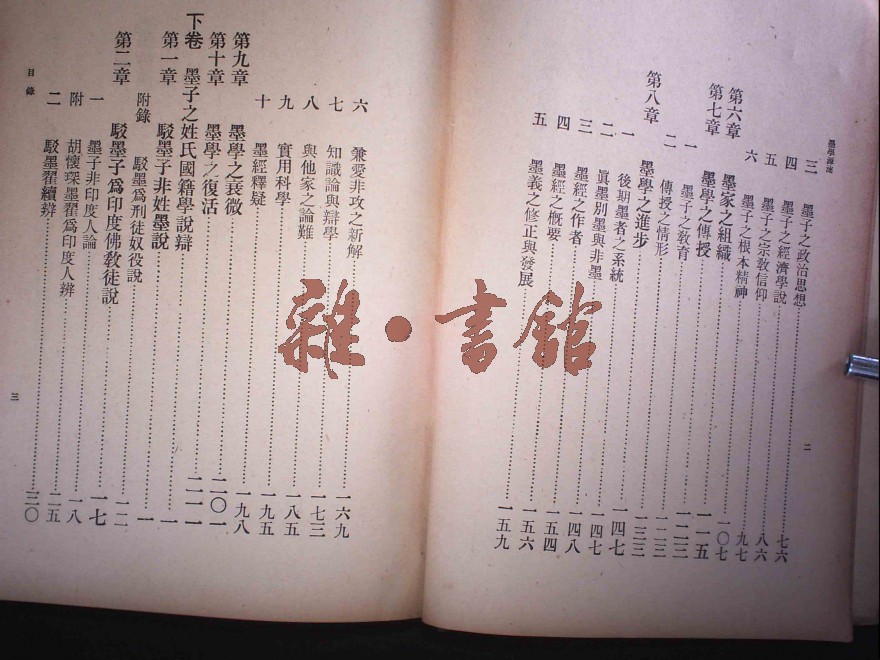 墨學源流
三 墨子之政治思想 七六
四 墨子之經濟學說 八六
五 墨子之宗教信仰 九七
六 墨子之根本精神 一〇七
第六章 墨家之組織 一一五
第七章 墨學之傳授 一二三
一 墨子之教育 一二三
二 傳授之情形 一三三
第八章 墨學之進步 一四七
一 後期墨者之系統 一四七
二 眞墨別墨與非墨 一四八
三 墨經之作者 一五四
四 墨經之概要 一五六
五 墨義之修正與發展 一五九
二
六 兼愛非攻之新解 一六九
七 知識論與辯學 一七三
八 與他家之論難 一八五
九 實用科學 一九五
十 墨經釋疑 一九八
第九章 墨學之衰微 二〇一
第十章 墨學之復活 二一一
下卷 墨子之姓氏國籍學說辯 一
第一章 駁墨子非姓墨說 一
附錄 駁墨爲刑徒奴役說 一二
第二章 駁墨子爲印度佛教徒說 一七
一 墨子非印度人論 一八
附 胡懷琛墨翟爲印度人辨 二五
二 駁墨翟續辨 三〇
目錄
三
雜·書館